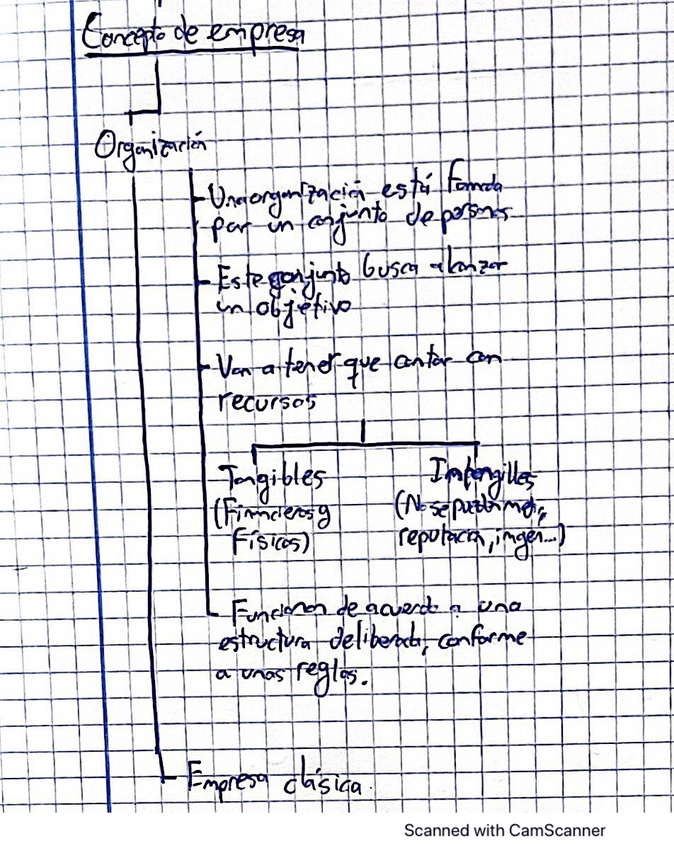 Concepto de empresa
Organización
Una organización está formada
por un conjunto de personas
Este conjunto busca alcanzar
un objetivo
Van a tener que contar con
recursos
Tangibles
(Financieros y
Físicos)
Intangibles
(No se pueden medir,
reputación, imagen...)
Funcionan de acuerdo a una
estructura deliberada, conforme
a unas reglas.
Empresa clásica
Scanned with CamScanner